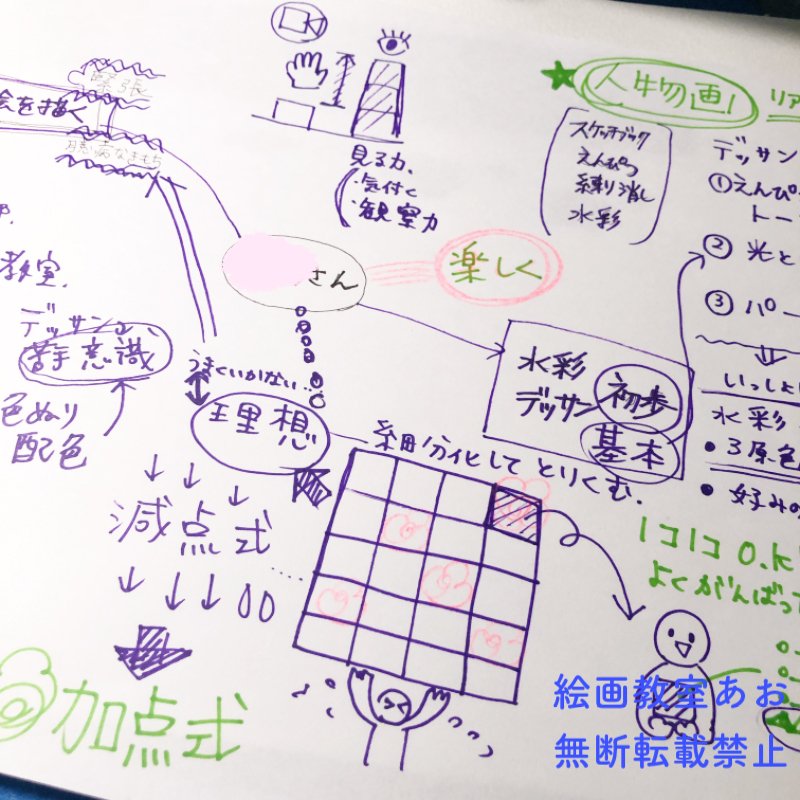 緊張
絵を描く
臆病なきもち
見る力
・気付く
・観察力
人物画!
リア
スケッチブック
えんぴつ
練り消し
水彩
デッサン
①えんぴ
トー
② 光と
③ パー
さん
楽しく
教室.
デッサン
苦手意識
色ぬり
配色
うまくいかない…
理想
水彩
デッサン
初歩
基本
いっしょ
水彩
・3原色
・好みの
細分化して とりくむ.
減点式
加点式
1コ1コ O.K
よくがんばって
絵画教室あお
無断転載禁止